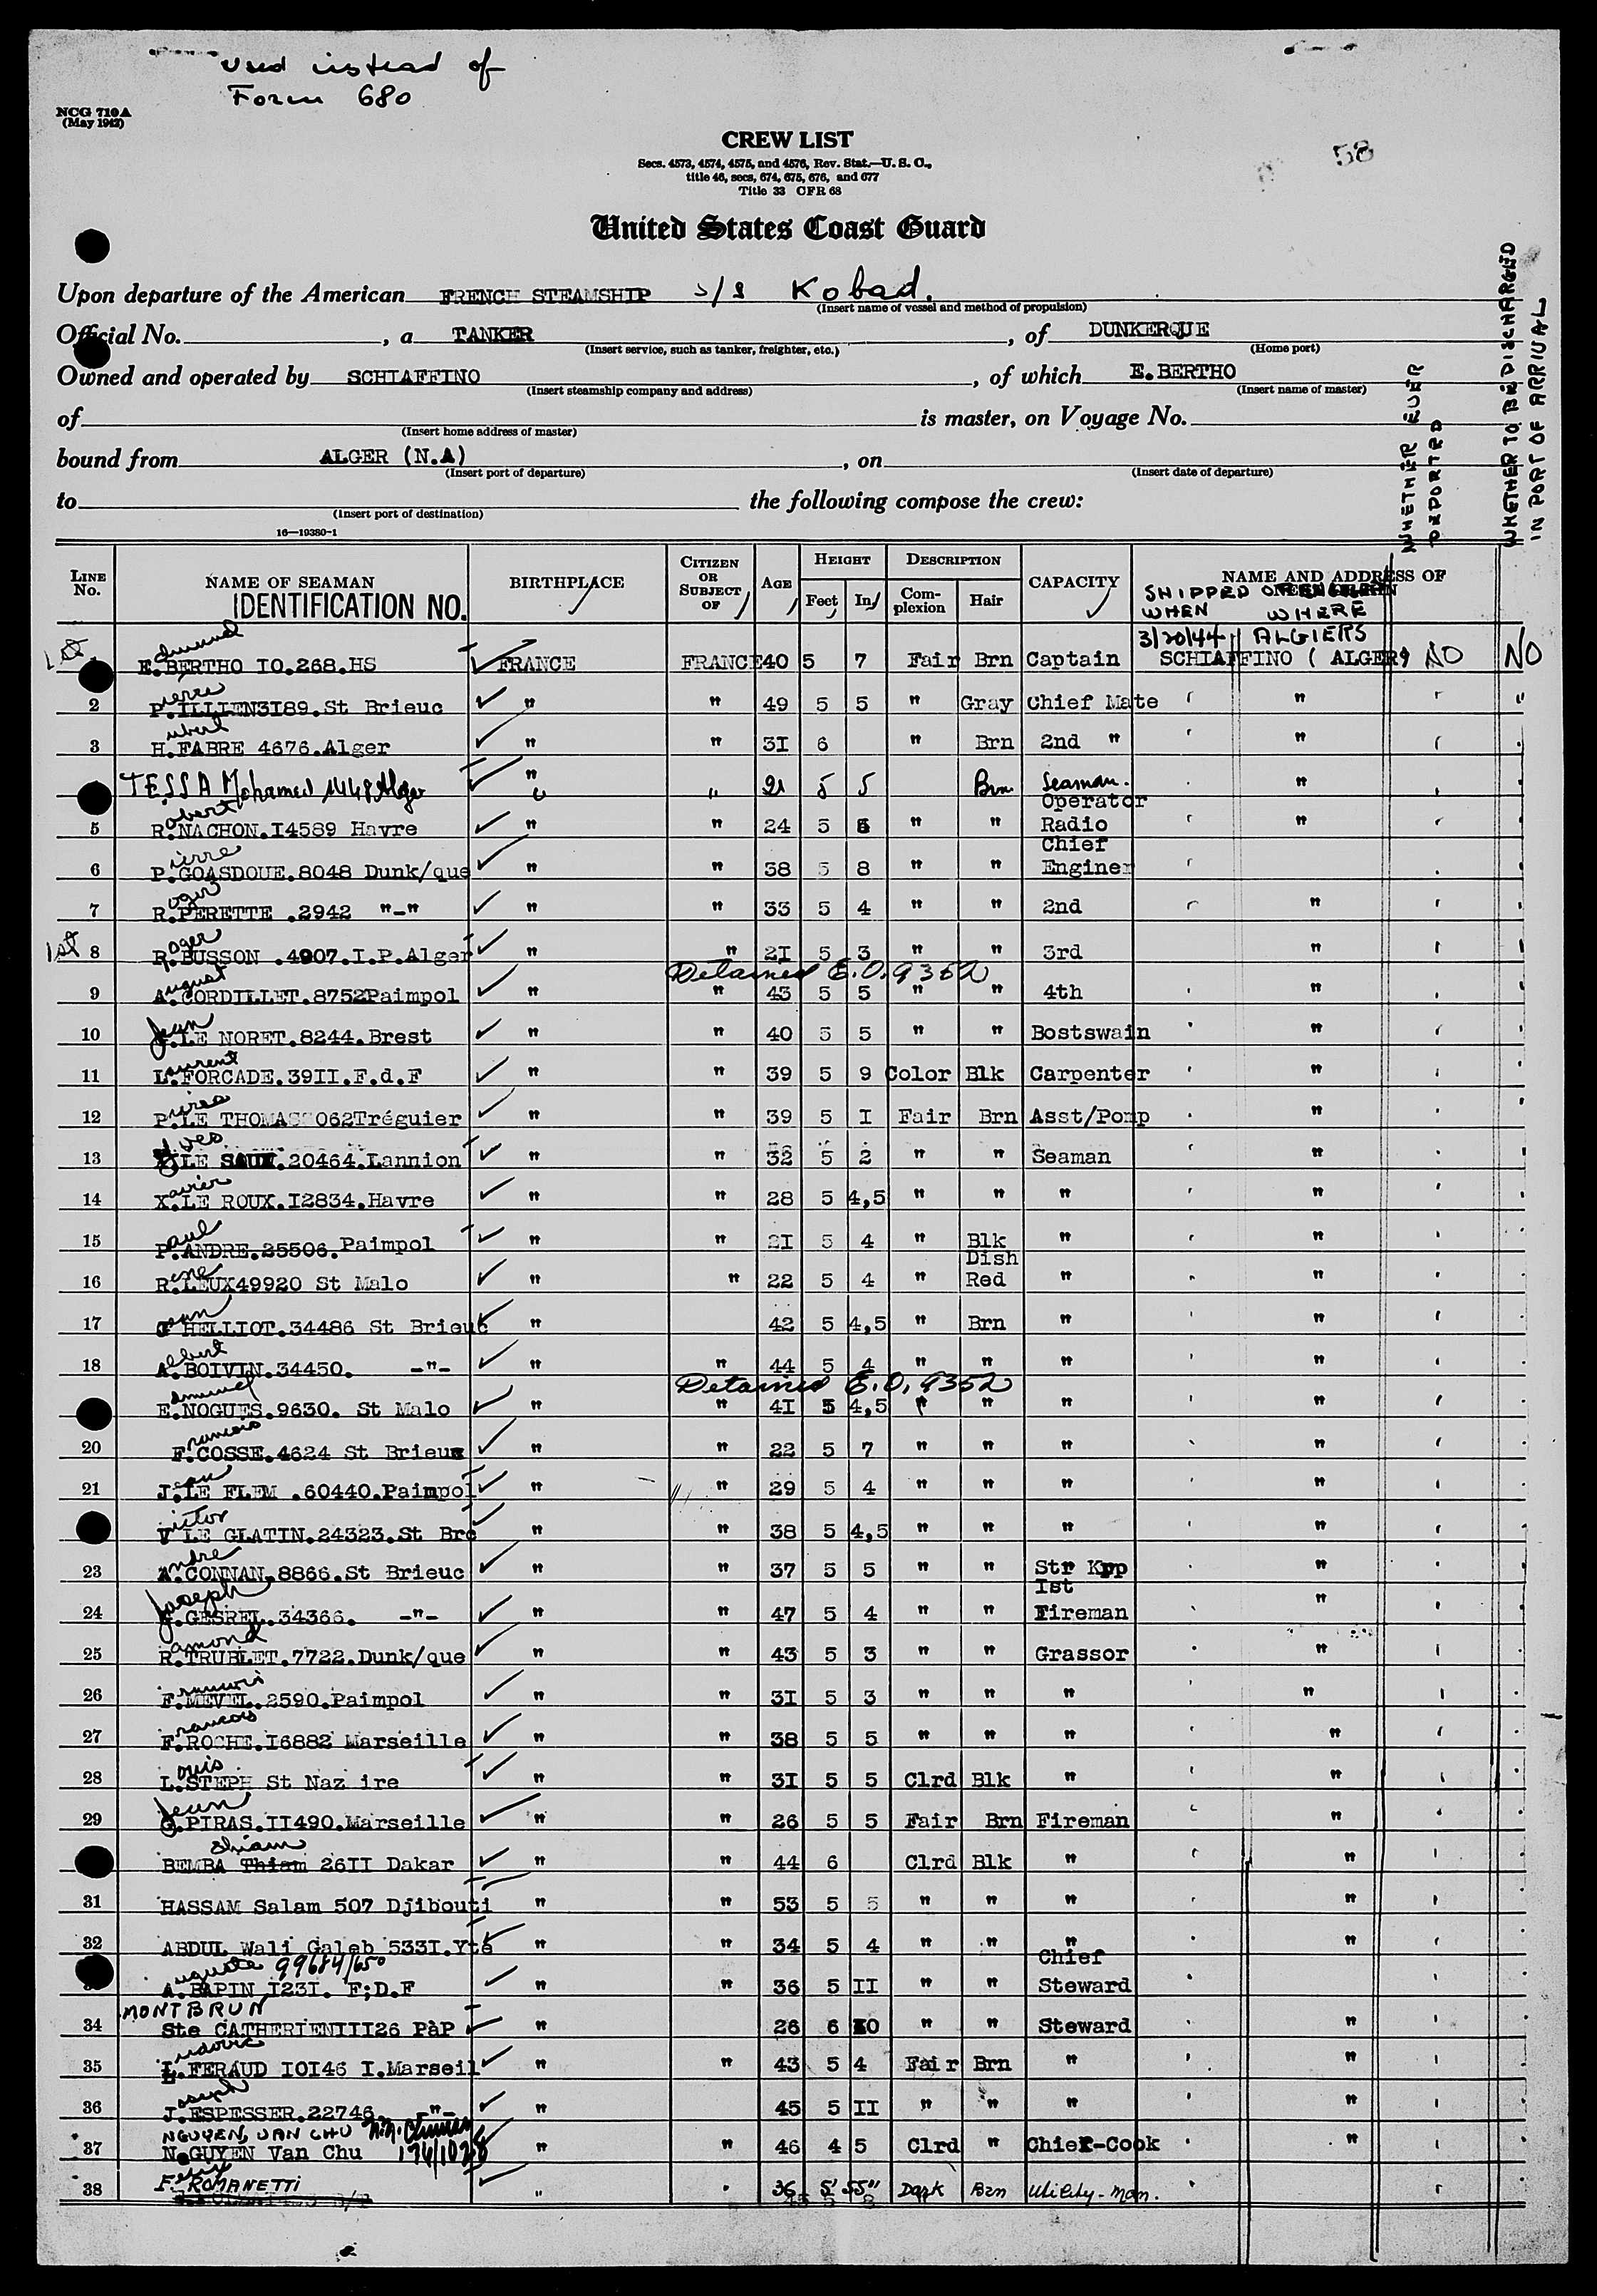 used instead of
Form 680
NCG 710A
(May 1942)
58
CREW LIST
Secs. 4573, 4574, 4575, and 4576, Rev. Stat.—U. S. C.,
title 46, secs, 674, 675, 676, and 677
Title 33 CFR 68
United States Coast Guard
Upon departure of the American FRENCH STEAMSHIP s/s Kobad.
(Insert name of vessel and method of propulsion)
Official No. , a TANKER , of DUNKERQUE
(Insert service, such as tanker, freighter, etc.) (Home port)
Owned and operated by SCHIAFFINO , of which E.BERTHO
(Insert steamship company and address) (Insert name of master)
of is master, on Voyage No.
(Insert home address of master)
bound from ALGER (N.A) , on
(Insert port of departure) (Insert date of departure)
to the following compose the crew:
(Insert port of destination)
16—19380-1
WHETHER EVER DEPORTED
WHETHER TO BE DISCHARGED IN PORT OF ARRIVAL
LINE No. NAME OF SEAMAN IDENTIFICATION NO. BIRTHPLACE CITIZEN OR SUBJECT OF AGE HEIGHT Feet In DESCRIPTION Complexion Hair CAPACITY NAME AND ADDRESS OF
SHIPPED OR ENGAGED
WHEN WHERE
3/20/44 ALGIERS
1st E.dmund BERTHO IO.268.HS FRANCE FRANCE 40 5 7 Fair Brn Captain SCHIAFFINO ( ALGER) NO NO
2 P.ierre ILLIEN3I89.St Brieuc " " 49 5 5 " Gray Chief Mate " "
3 H.ubert FABRE 4676.Alger " " 3I 6 " Brn 2nd " "
TESSA Mohamed 1448 Alger " " 21 5 5 Brn Seaman. "
5 R.obert NACHON.I4589 Havre " " 24 5 6 " " Operator Radio "
6 P.ierre GOASDOUE.8048 Dunk/que " " 38 5 8 " " Chief Enginer
7 R.oger PERETTE .2942 "-" " " 33 5 4 " " 2nd "
1st 8 R.oger BUSSON .4907.I.P.Alger " " 2I 5 3 " " 3rd "
Detained E.O. 9352
9 A.ugust CORDILLET.8752Paimpol " " 43 5 5 " " 4th "
10 Jean J.LE NORET.8244.Brest " " 40 5 5 " " Bostswain "
11 L.aurent FORCADE.39II.F.d.F " " 39 5 9 Color Blk Carpenter "
12 P. LE THOMAS 062Tréguier " " 39 5 I Fair Brn Asst/Pomp "
13 Yves LE SAUX.20464.Lannion " " 32 5 2 " " Seaman "
14 X.avier LE ROUX.I2834.Havre " " 28 5 4,5 " " " "
15 P.aul ANDRE.25506.Paimpol " " 2I 5 4 " Blk " "
16 R.ene LEUX49920 St Malo " " 22 5 4 " Dish Red " "
17 Jean HELLIOT.34486 St Brieuc " 42 5 4,5 " Brn " "
18 A.lbert BOIVIN.34450. -"- " " 44 5 4 " " " "
Detained E.O. 9352
E.mmanuel NOGUES.9630. St Malo " " 4I 5 4,5 " " " "
20 F.rancois COSSE.4624 St Brieux " " 22 5 7 " " " "
21 J.ean LE FLEM .60440.Paimpol " " 29 5 4 " " " "
V.ictor LE GLATIN.24323.St Brc " " 38 5 4,5 " " " "
23 A.ndre CONNAN.8866.St Brieuc " " 37 5 5 " " Str Kpp "
24 Joseph GESREL.34366. -"- " " 47 5 4 " " Ist Fireman "
25 R.amond TRUBLET.7722.Dunk/que " " 43 5 3 " " Grassor "
26 F. MEVEL.2590.Paimpol " " 3I 5 3 " " " "
27 F.rancois ROCHE.I6882 Marseille " " 38 5 5 " " " "
28 L.ouis STEPH St Naz ire " " 3I 5 5 Clrd Blk " "
29 Jean PIRAS.II490.Marseille " " 26 5 5 Fair Brn Fireman "
BEMBA Thiam 26II Dakar " " 44 6 Clrd Blk " "
31 HASSAM Salam 507 Djibouti " " 53 5 5 " " " "
32 ABDUL Wali Galeb 533I.Yte " " 34 5 4 " " " "
A.uguste PAPIN I23I. F;D.F 99684/650 " " 36 5 II " " Chief Steward
MONTBRUN
34 Ste CATHERIENIII26 PàP " 26 6 10 " " Steward "
35 L.udovic FERAUD IOI46 I.Marseil " " 43 5 4 Fair Brn " "
36 J.oseph ESPESSER.22746. -"- " 45 5 II " " " "
NGUYEN, VAN CHU
37 N.GUYEN Van Chu " " 46 4 5 Clrd " Chief-Cook "
38 F. ROMANETTI " 36 5' 55" Dark Brn Utility-man.